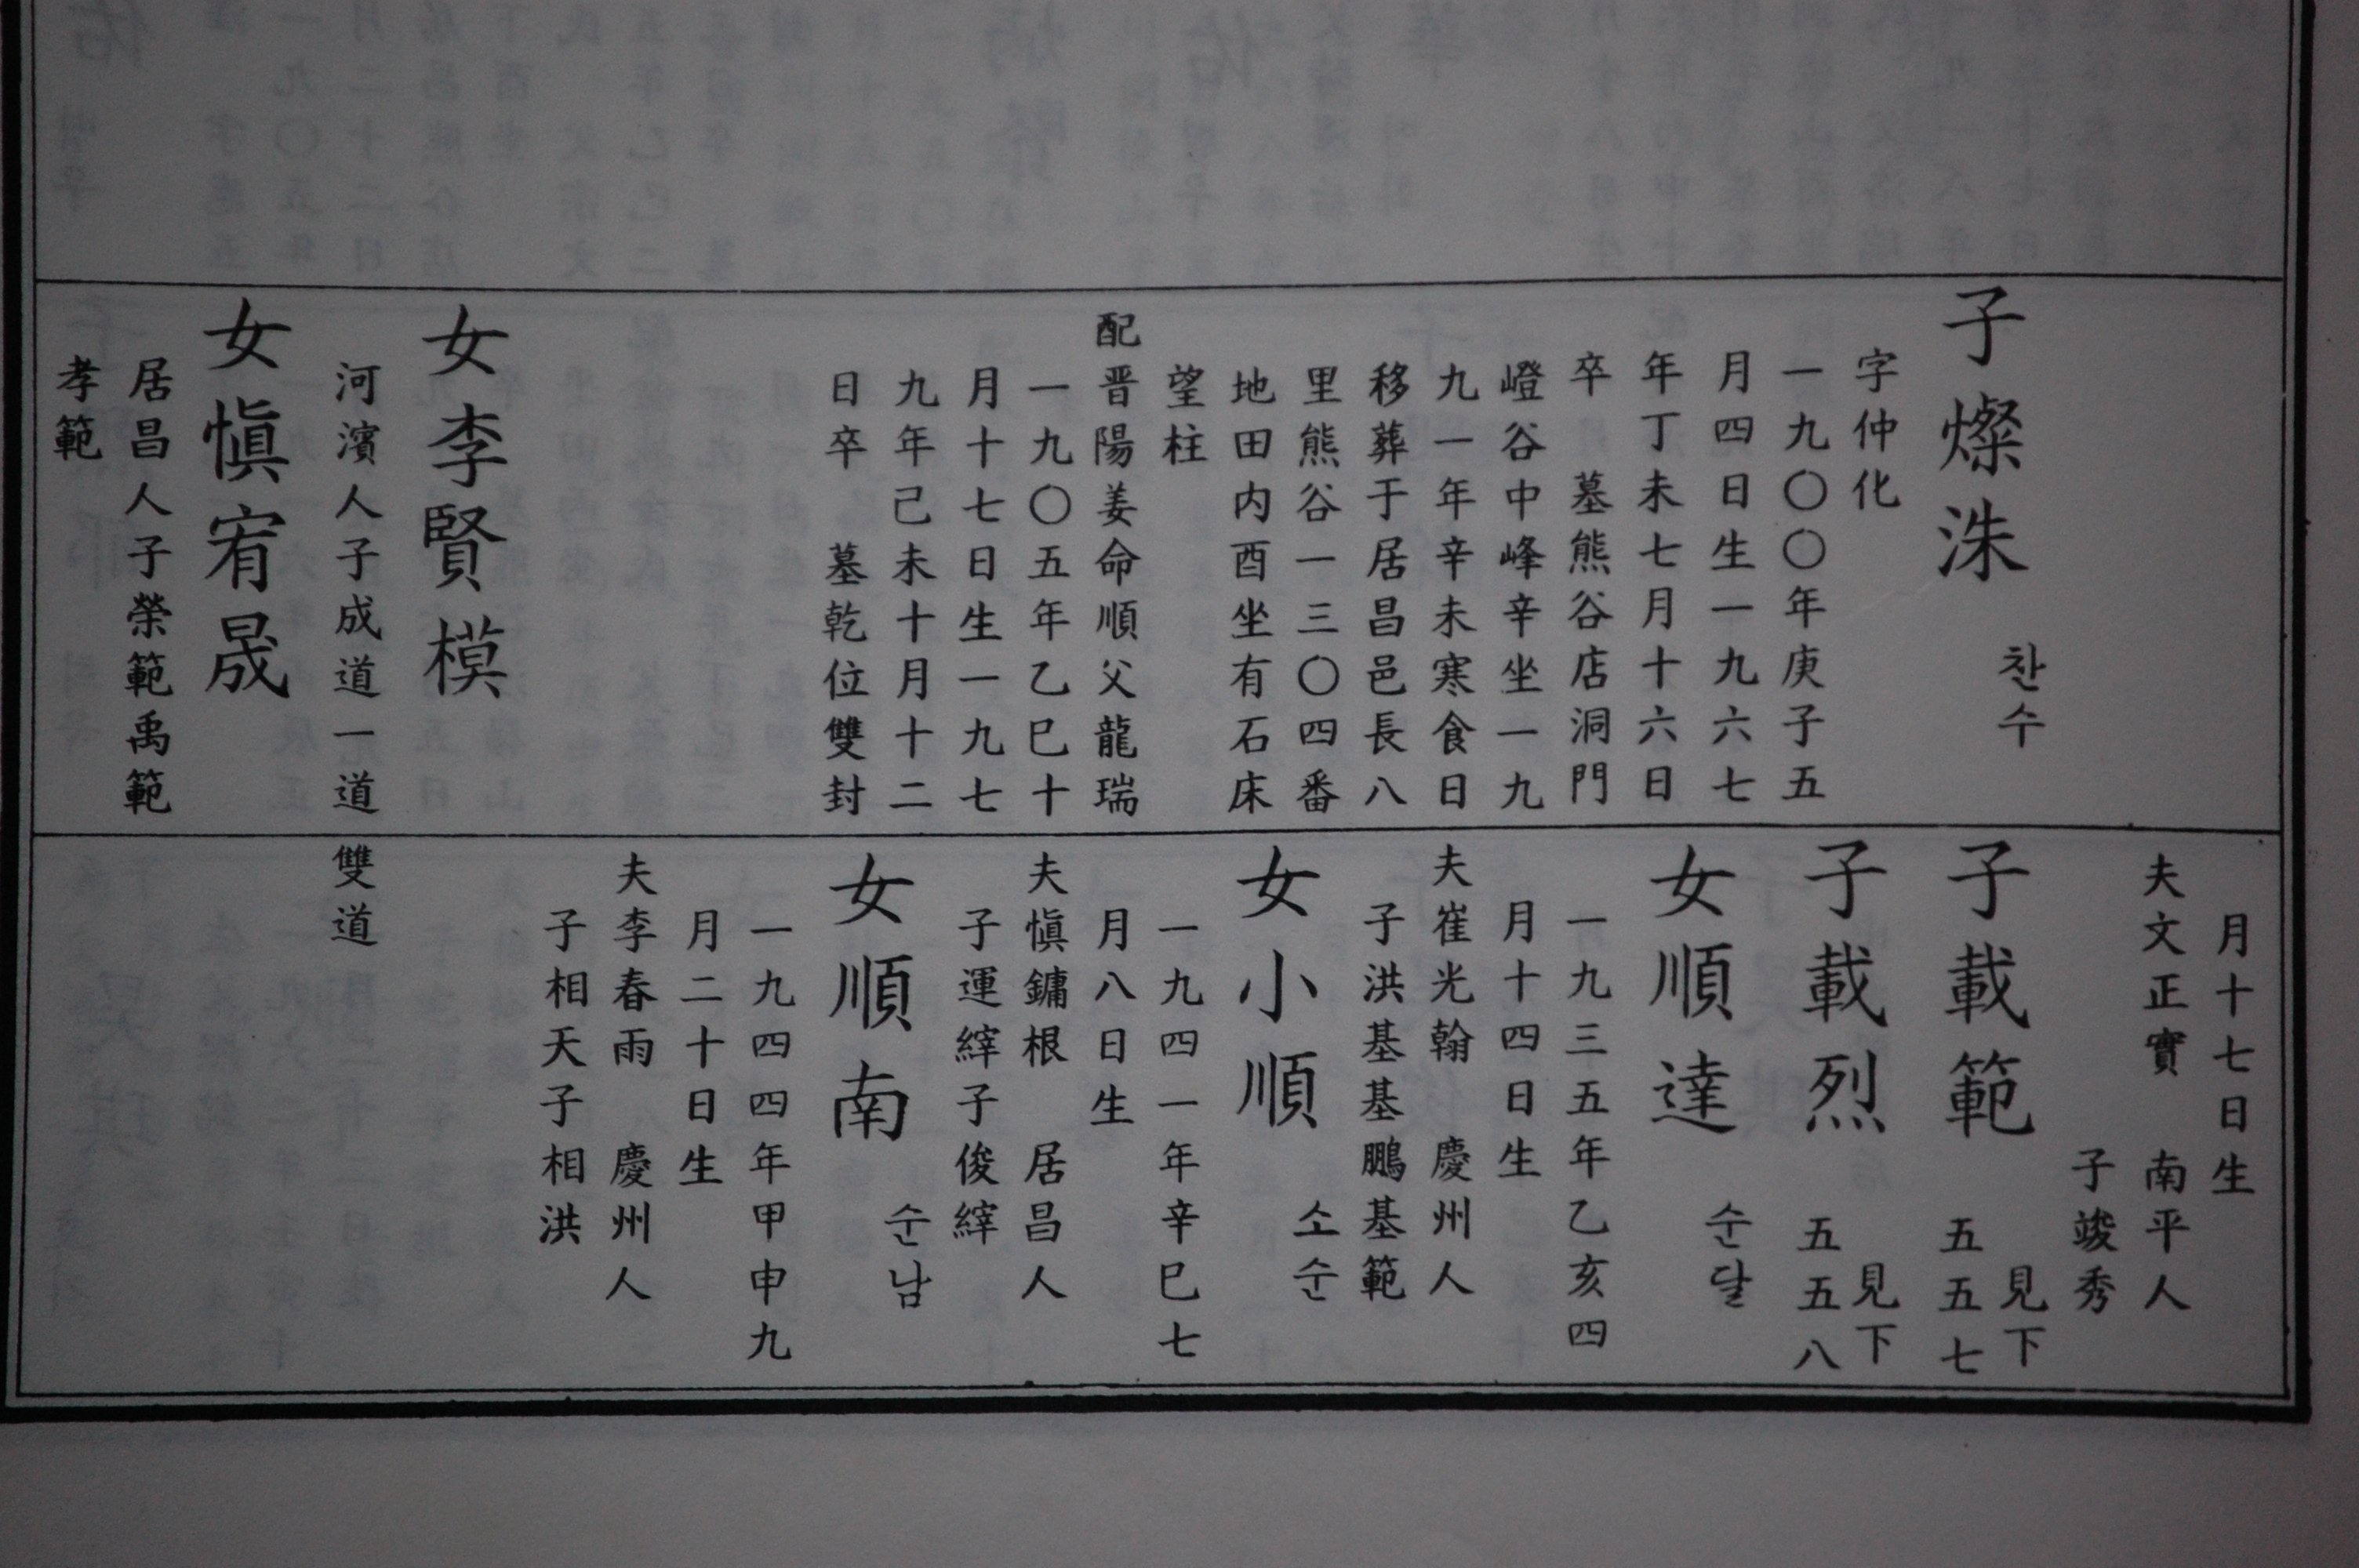 子燦洙
찬수
字仲化
一九〇〇年庚子五
月四日生一九六七
年丁未七月十六日
卒 墓熊谷店洞門
嶝谷中峰辛坐一九
九一年辛未寒食日
移葬于居昌邑長八
里熊谷一三〇四番
地田内酉坐有石床
望柱
配晋陽姜命順父龍瑞
一九〇五年乙巳十
月十七日生一九七
九年己未十月十二
日卒 墓乾位雙封
女李賢模
河濱人子成道一道
女愼宥晟
居昌人子榮範禹範
孝範
月十七日生
夫文正實 南平人
子竣秀
子載範
見下
五五七
子載烈
見下
五五八
女順達
순달
一九三五年乙亥四
月十四日生
夫崔光翰 慶州人
子洪基基鵬基範
女小順
소순
一九四一年辛巳七
月八日生
夫愼鏞根 居昌人
子運縡子俊縡
女順南
순남
一九四四年甲申九
月二十日生
夫李春雨 慶州人
子相天子相洪
雙道